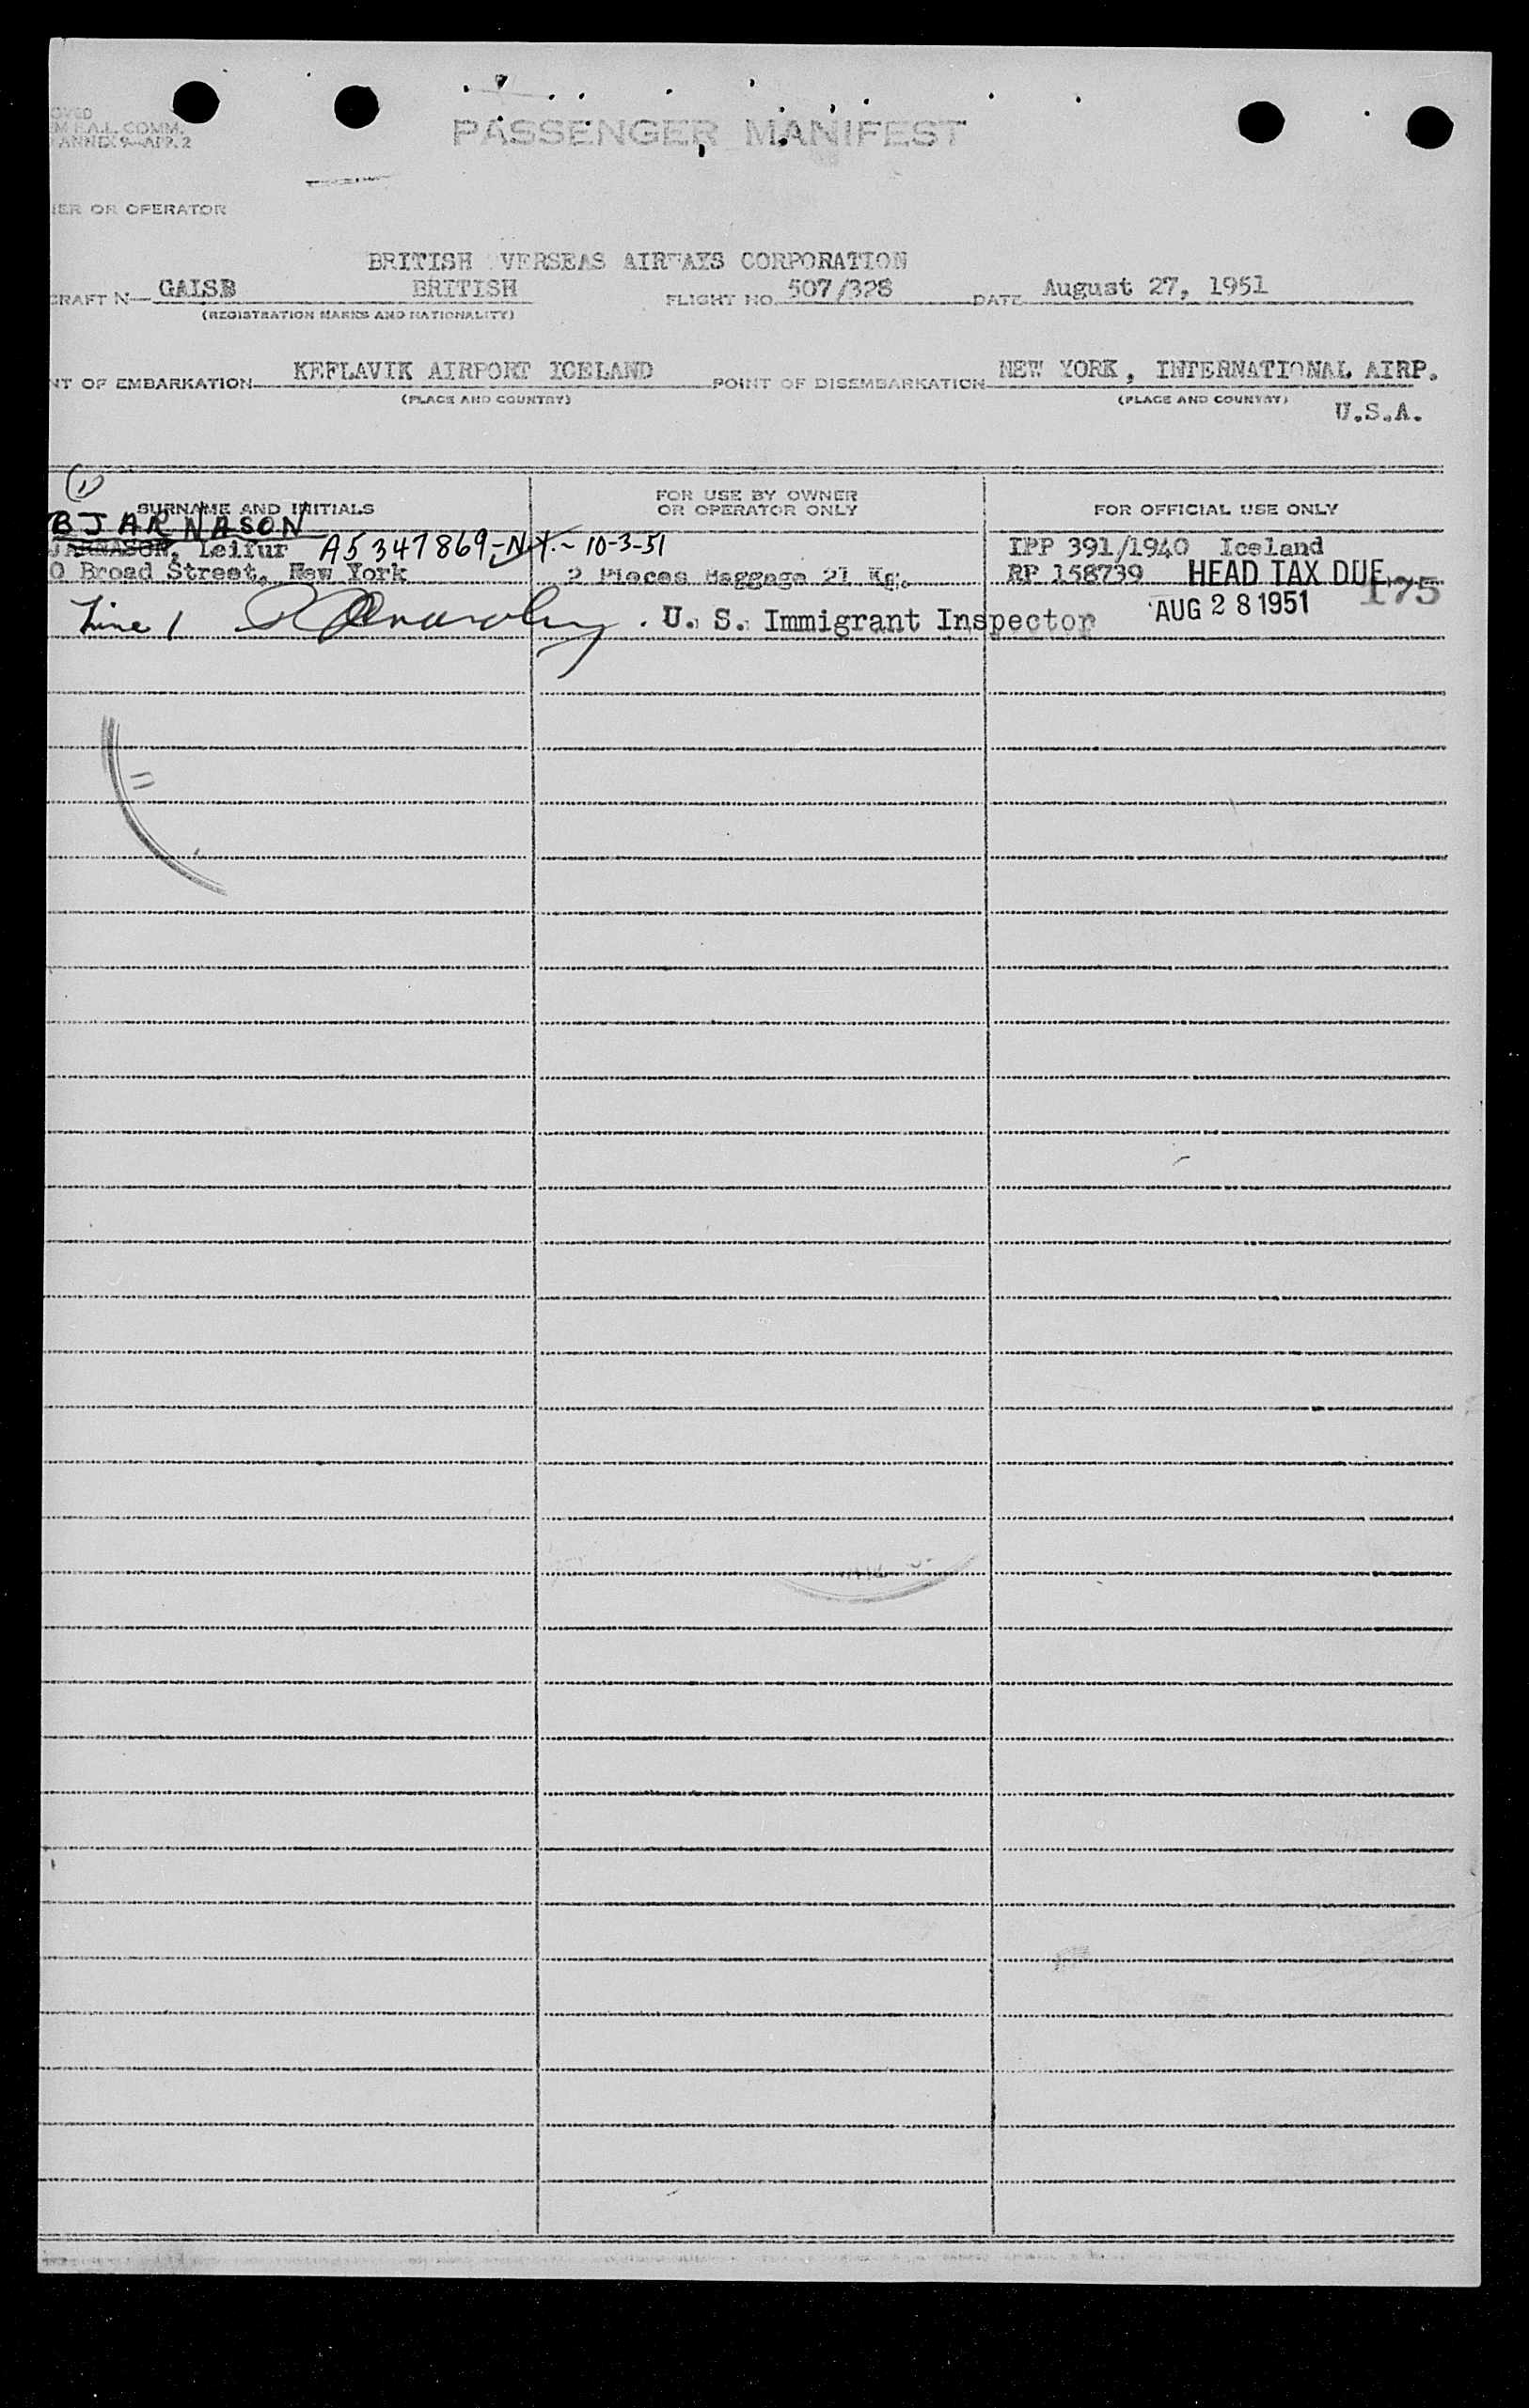 OVED
M F.A.L. COMM.
ANNEX 9-APP. 2
PASSENGER MANIFEST
IER OR OPERATOR
BRITISH VERSEAS AIRWAYS CORPORATION
CRAFT N GAISB BRITISH FLIGHT NO. 507/328 DATE August 27, 1951
(REGISTRATION MARKS AND NATIONALITY)
NT OF EMBARKATION KEFLAVIK AIRPORT ICELAND POINT OF DISEMBARKATION NEW YORK, INTERNATIONAL AIRP.
(PLACE AND COUNTRY) (PLACE AND COUNTRY)
U.S.A.
(1)
SURNAME AND INITIALS FOR USE BY OWNER OR OPERATOR ONLY FOR OFFICIAL USE ONLY
BJARNASON
JARNASON, Leifur A5 347869-N.Y.- 10-3-51 IPP 391/1940 Iceland
0 Broad Street, New York 2 Pieces Baggage 21 Kg. RP 158739 HEAD TAX DUE 175
Line 1 U. S. Immigrant Inspector AUG 28 1951